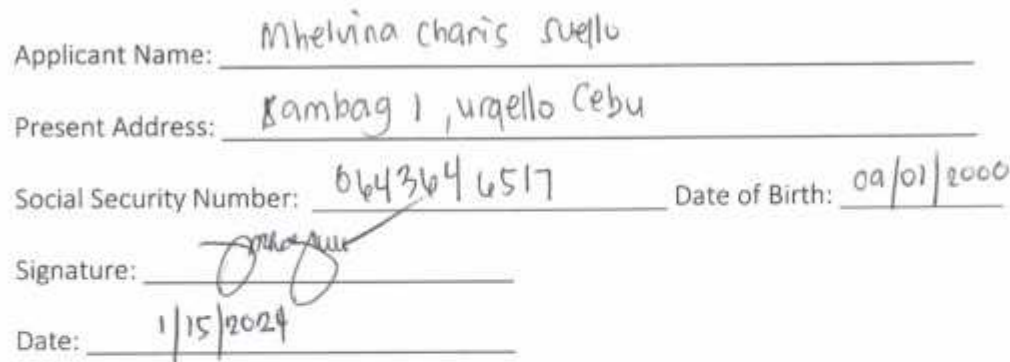 Applicant Name: Mhelvina Charis Suello
Present Address: Sambag 1, urgello Cebu
Social Security Number: 0643646517 Date of Birth: 09/01/2000
Signature:
Date: 1/15/2024